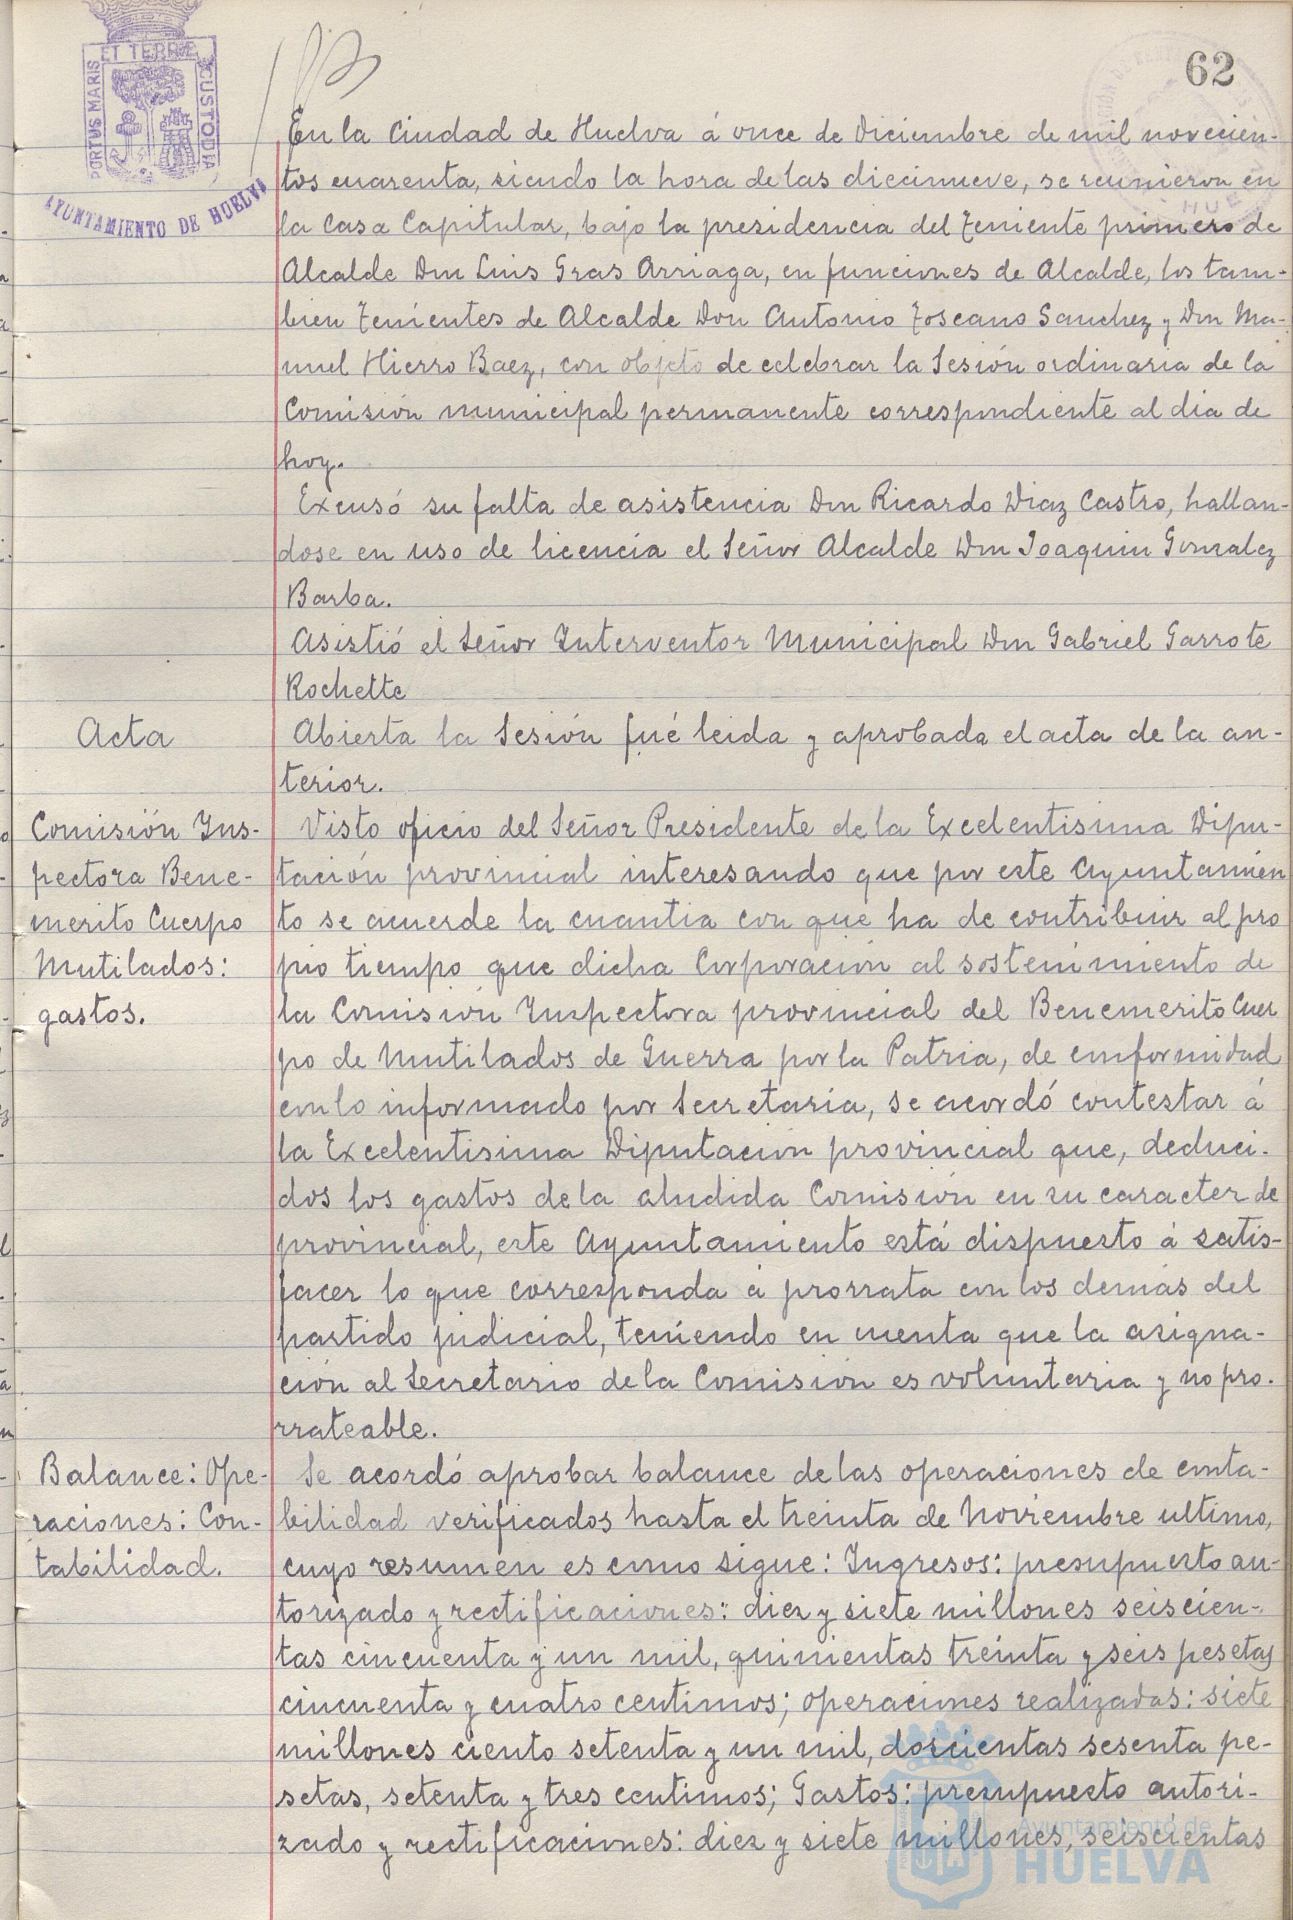 62
PORTUS MARIS
ET TERRÆ
CUSTODIA
AYUNTAMIENTO DE HUELVA
En la Ciudad de Huelva á once de Diciembre de mil novecien-
tos cuarenta, siendo la hora de las diecinueve, se reunieron en
la Casa Capitular, bajo la presidencia del Teniente primero de
Alcalde Don Luis Gras Arriaga, en funciones de Alcalde, los tam-
bien Tenientes de Alcalde Don Antonio Toscano Sanchez y Don Ma-
nuel Hierro Baez, con objeto de celebrar la Sesión ordinaria de la
Comisión municipal permanente correspondiente al dia de
hoy.
Excusó su falta de asistencia Don Ricardo Diaz Castro, hallan-
dose en uso de licencia el Señor Alcalde Don Joaquin Gonzalez
Barba.
Asistió el Señor Interventor Municipal Don Gabriel Garrote
Rochette
Acta
Abierta la Sesión fué leida y aprobada el acta de la an-
terior.
Comisión Ins-
pectora Bene-
merito Cuerpo
Mutilados:
gastos.
Visto oficio del Señor Presidente de la Excelentisima Dipu-
tación provincial interesando que por este Ayuntamien
to se acuerde la cuantia con que ha de contribuir al pro
pio tiempo que dicha Corporación al sostenimiento de
la Comisión Inspectora provincial del Benemerito Cuer
po de Mutilados de Guerra por la Patria, de conformidad
con lo informado por Secretaria, se acordó contestar á
la Excelentisima Diputación provincial que, deduci-
dos los gastos de la aludida Comisión en su caracter de
provincial, este Ayuntamiento está dispuesto á satis-
facer lo que corresponda á prorrata con los demás del
partido judicial, teniendo en cuenta que la asigna-
ción al Secretario de la Comisión es voluntaria y no pro-
rrateable.
Balance: Ope-
raciones: Con-
tabilidad.
Se acordó aprobar balance de las operaciones de conta-
bilidad verificados hasta el treinta de Noviembre ultimo,
cuyo resumen es como sigue: Ingresos: presupuesto au-
torizado y rectificaciones: diez y siete millones seiscien-
tas cincuenta y un mil, quinientas treinta y seis pesetas
cincuenta y cuatro centimos; operaciones realizadas: siete
millones ciento setenta y un mil, doscientas sesenta pe-
setas, setenta y tres centimos; Gastos: presupuesto autori-
zado y rectificaciones: diez y siete millones, seiscientas
Ayuntamiento de
HUELVA